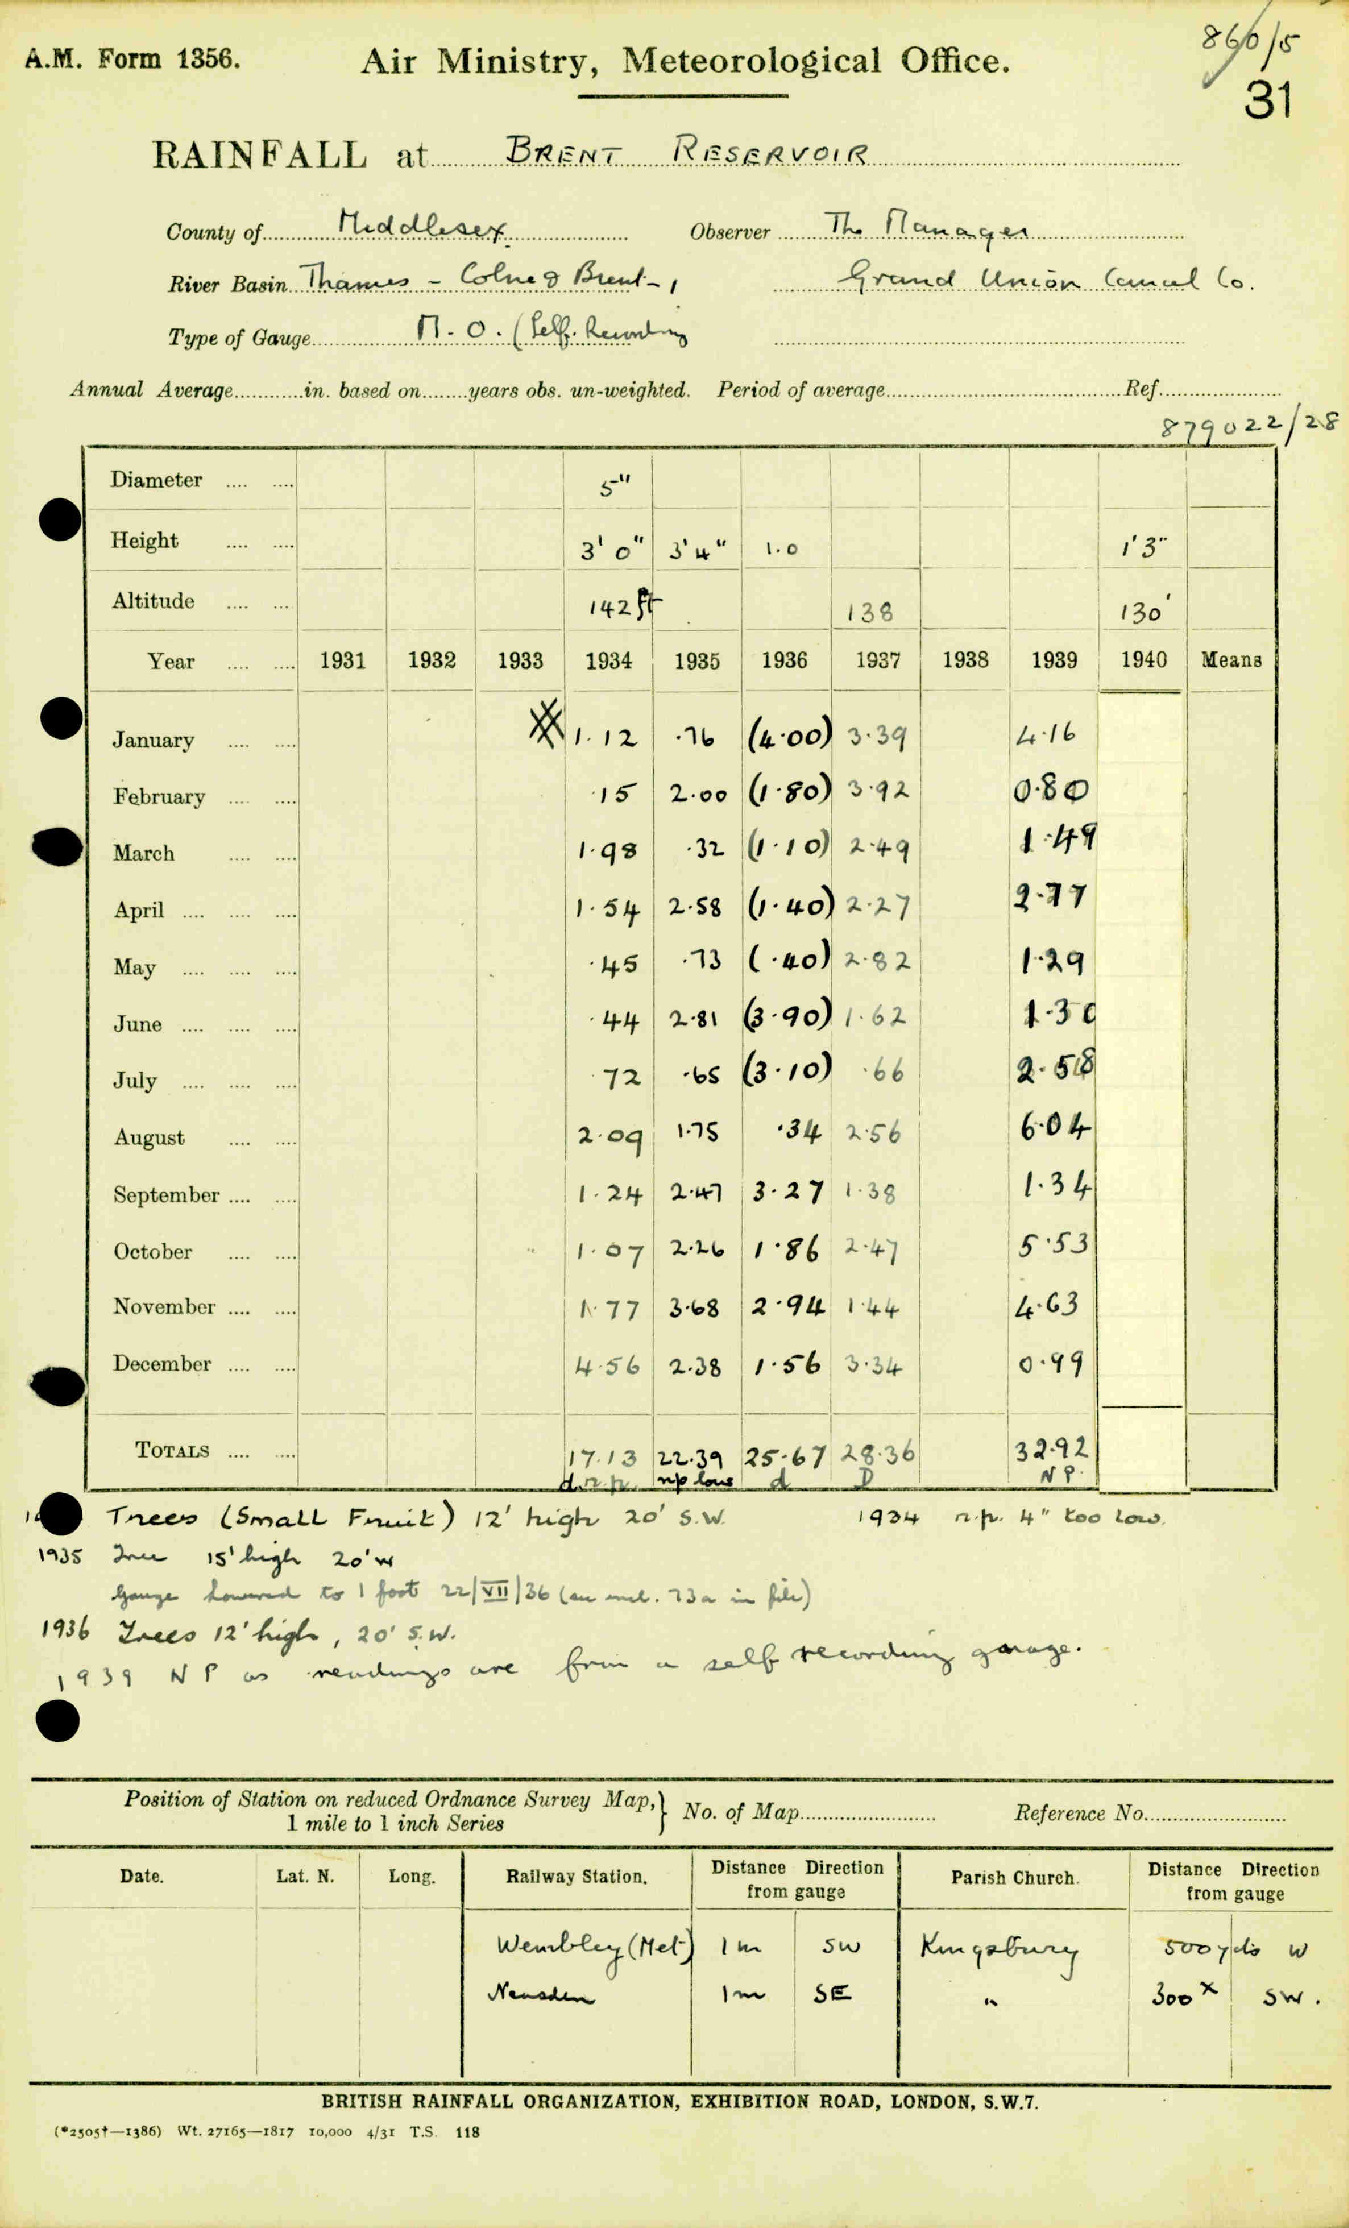 860/5
A.M. Form 1356. Air Ministry, Meteorological Office.
31
RAINFALL at BRENT RESERVOIR
County of Middlesex Observer The Manager
River Basin Thames - Colne & Brent - 1 Grand Union Canal Co.
Type of Gauge M.O. (Self. Recording
Annual Average in. based on years obs. un-weighted. Period of average Ref.
879022/28
Diameter 5"
Height 3' 0" 3' 4" 1.0 1' 3"
Altitude 142 ft 138 130'
Year 1931 1932 1933 1934 1935 1936 1937 1938 1939 1940 Means
January 1.12 .76 (4.00) 3.39 4.16
February .15 2.00 (1.80) 3.92 0.80
March 1.98 .32 (1.10) 2.49 1.49
April 1.54 2.58 (1.40) 2.27 2.77
May .45 .73 (.40) 2.82 1.29
June .44 2.81 (3.90) 1.62 1.30
July .72 .65 (3.10) .66 2.58
August 2.09 1.75 .34 2.56 6.04
September 1.24 2.47 3.27 1.38 1.34
October 1.07 2.26 1.86 2.47 5.53
November 1.77 3.68 2.94 1.44 4.63
December 4.56 2.38 1.56 3.34 0.99
TOTALS 17.13 22.39 25.67 28.36 32.92
d.n.p. np low d D NP.
Trees (Small Fruit) 12' high 20' S.W. 1934 n.p. 4" too low.
1935 Tree 15' high 20' W
Gauge lowered to 1 foot 22/VII/36 (see encl. 73a in file)
1936 Trees 12' high, 20' S.W.
1939 NP as readings are from a self recording guage.
Position of Station on reduced Ordnance Survey Map, } No. of Map Reference No.
1 mile to 1 inch Series
Date. Lat. N. Long. Railway Station. Distance Direction from gauge Parish Church. Distance Direction from gauge
Wembley (Met) 1m SW Kingsbury 500 yds W
Neasden 1m SE " 300x SW.
BRITISH RAINFALL ORGANIZATION, EXHIBITION ROAD, LONDON, S.W.7.
(*2505†—1386) Wt. 27165—1817 10,000 4/31 T.S. 118